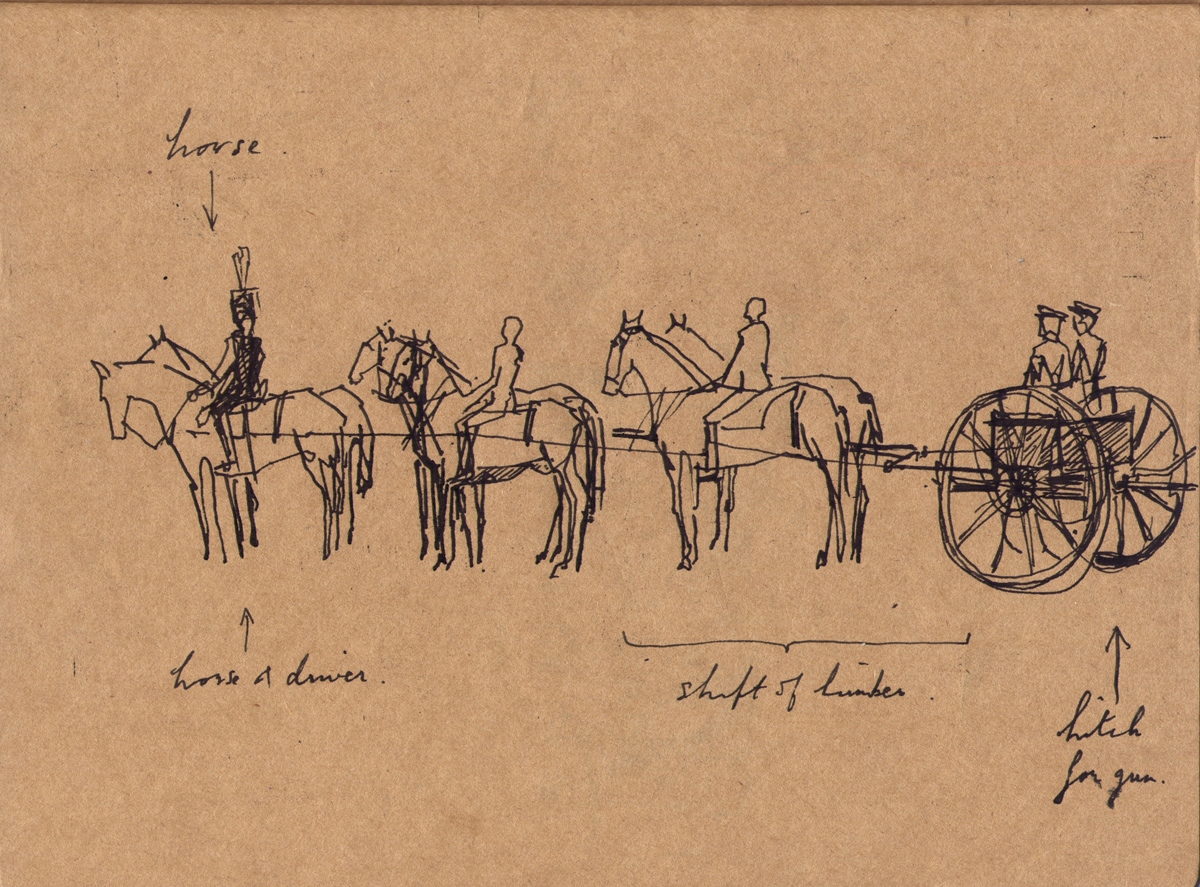 horse.
horse & driver.
shaft of limber.
hitch
for gun.